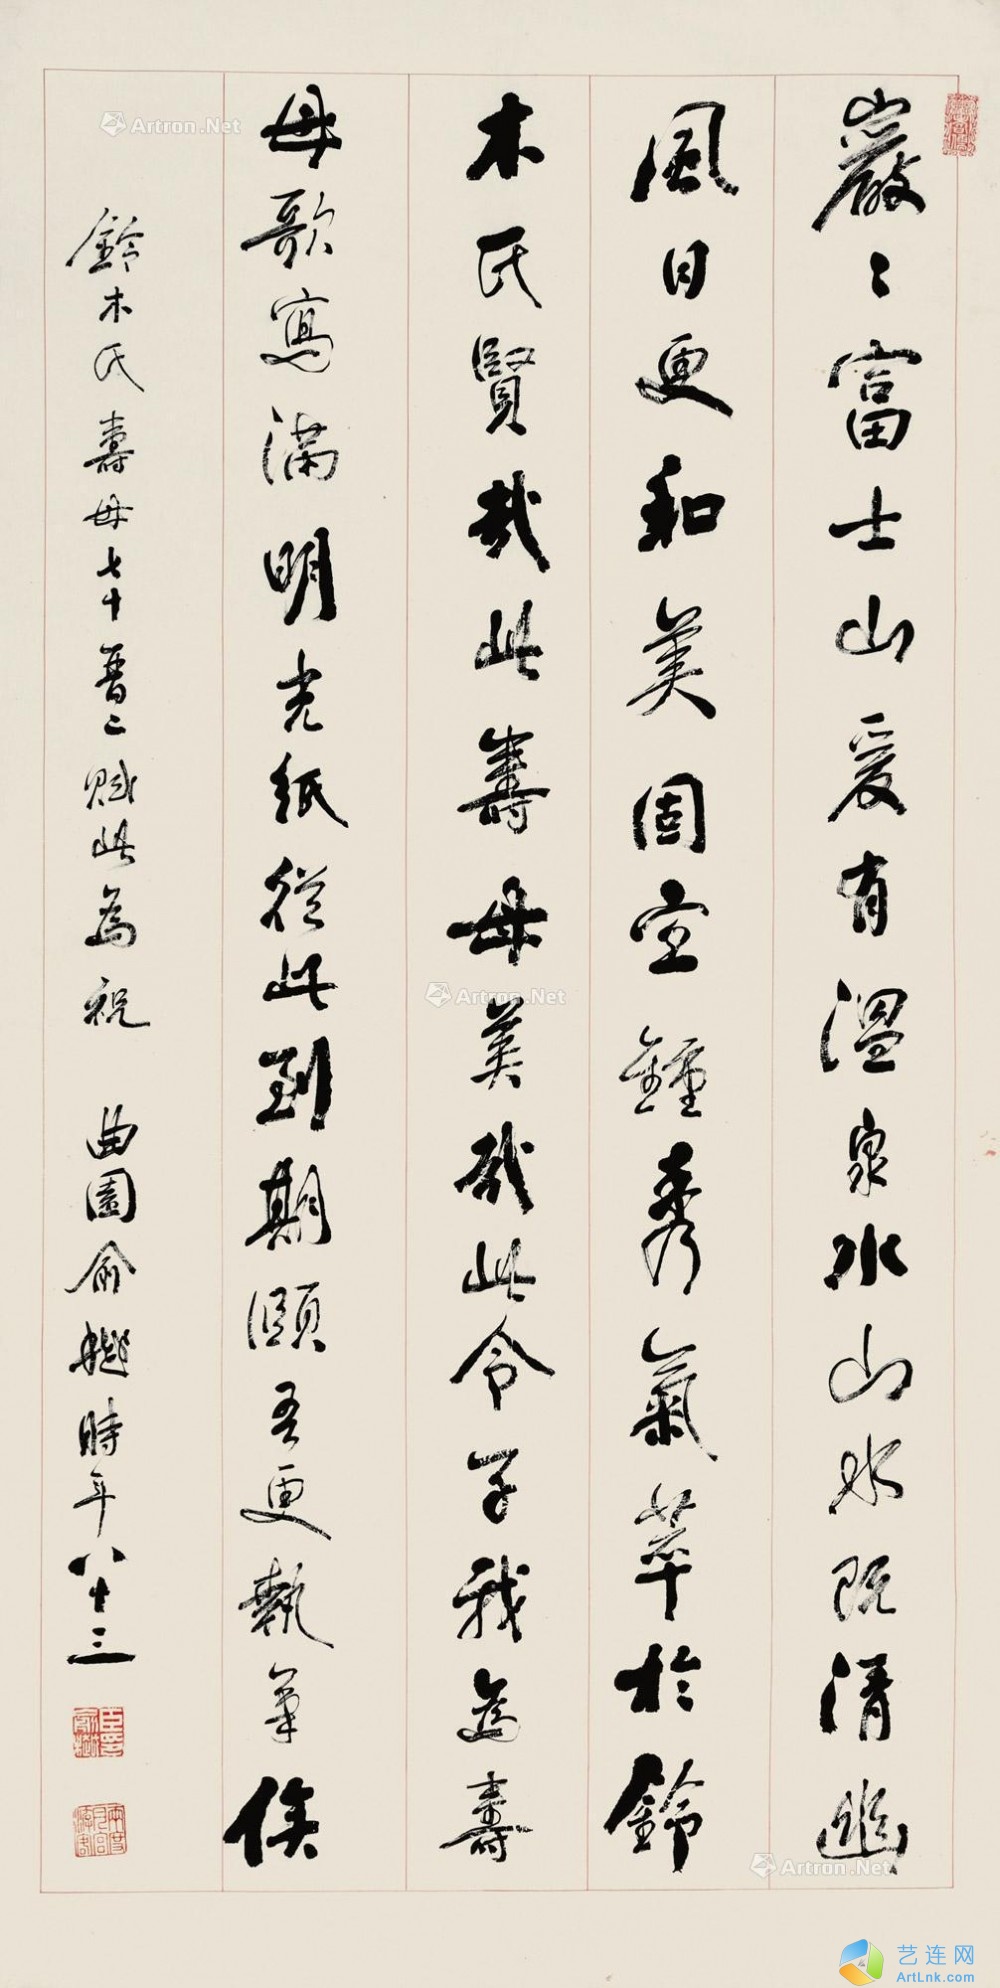 巖〻富士山爰有溫泉水山水既清幽
風日更和美固宜鍾秀氣萃於鈴
木氏賢哉此壽母美哉此令子我為壽
母歌寫滿明光紙從此到期頤吾更執筆俟
鈴木氏壽母七十晉二賦此為祝 曲園俞樾時年八十三
Artron.Net
Artron.Net
Artron.Net
艺连网
ArtLnk.com